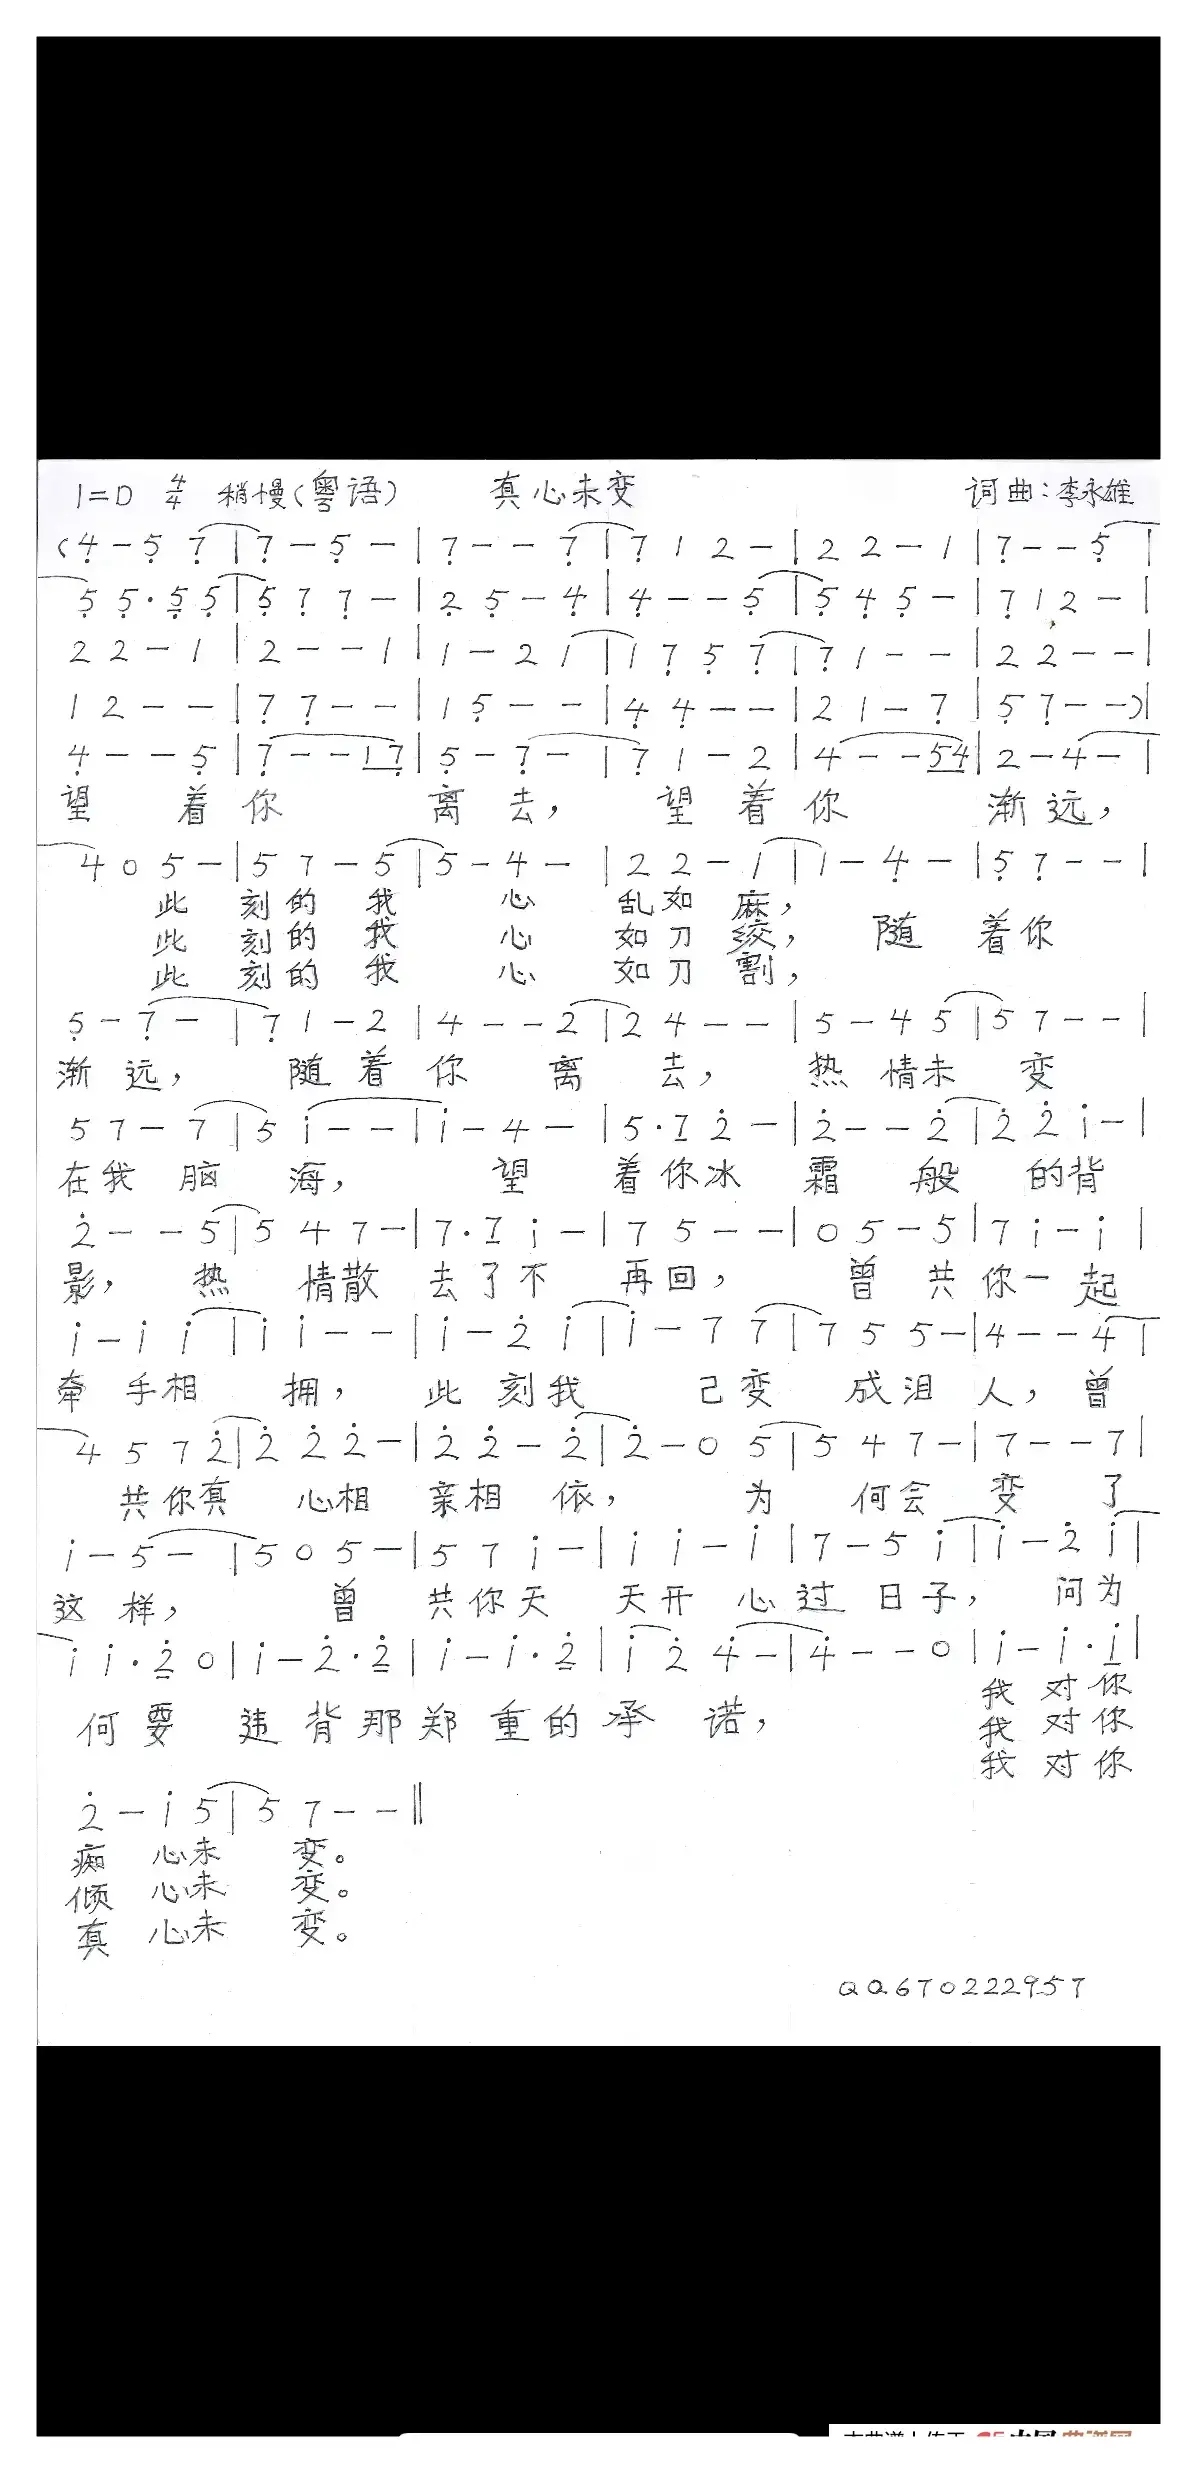 1=D 4/4 稍慢(粤语) 真心未变 词曲:李永雄
(4̣ – 5̣ 7̣ | 7̣ – 5̣ – | 7̣ – – 7̣ | 7̣ 1 2 – | 2 2 – 1 | 7̣ – – 5̣ |
5̣ 5̣ · 5̣ 5̣ | 5̣ 7̣ 7̣ – | 2̣ 5̣ – 4̣ | 4̣ – – 5̣ | 5̣ 4̣ 5̣ – | 7̣ 1 2 – |
2 2 – 1 | 2 – – 1 | 1 – 2 1 | 1 7̣ 5̣ 7̣ | 7̣ 1 – – | 2 2 – – |
1 2 – – | 7̣ 7̣ – – | 1 5̣ – – | 4̣ 4̣ – – | 2 1 – 7̣ | 5̣ 7̣ – –) |
4̣ – – 5̣ | 7̣ – – 1 7̣ | 5̣ – 7̣ – | 7̣ 1 – 2 | 4 – – 5 4 | 2 – 4 – |
望 着 你 离 去, 望 着 你 渐 远,
4 0 5 – | 5 7 – 5 | 5 – 4 – | 2 2 – 1 | 1 – 4̣ – | 5̣ 7̣ – – |
此 刻 的 我 心 乱 如 麻,
此 刻 的 我 心 如 刀 绞, 随 着 你
此 刻 的 我 心 如 刀 割,
5̣ – 7̣ – | 7̣ 1 – 2 | 4 – – 2 | 2 4 – – | 5 – 4 5 | 5 7 – – |
渐 远, 随 着 你 离 去, 热 情 未 变
5 7 – 7 | 5 i – – | i – 4 – | 5 · 7 2̇ – | 2̇ – – 2̇ | 2̇ 2̇ i – |
在 我 脑 海, 望 着 你 冰 霜 般 的 背
2̇ – – 5 | 5 4 7 – | 7 · 7 i – | 7 5 – – | 0 5 – 5 | 7 i – i |
影, 热 情 散 去 了 不 再 回, 曾 共 你 一 起
i – i i | i i – – | i – 2̇ i | i – 7 7 | 7 5 5 – | 4 – – 4 |
牵 手 相 拥, 此 刻 我 己 变 成 泪 人, 曾
4 5 7 2̇ | 2̇ 2̇ 2̇ – | 2̇ 2̇ – 2̇ | 2̇ – 0 5 | 5 4 7 – | 7 – – 7 |
共 你 真 心 相 亲 相 依, 为 何 会 变 了
i – 5 – | 5 0 5 – | 5 7 i – | i i – i | 7 – 5 i | i – 2̇ i |
这 样, 曾 共 你 天 天 开 心 过 日 子, 问 为
i i · 2̇ 0 | i – 2̇ · 2̇ | i – i · 2̇ | i 2̇ 4̇ – | 4̇ – – 0 | i – i · i |
何 要 违 背 那 郑 重 的 承 诺, 我 对 你
我 对 你
我 对 你
2̇ – i 5 | 5 7 – – ‖
痴 心 未 变。
倾 心 未 变。
真 心 未 变。
QQ670222957